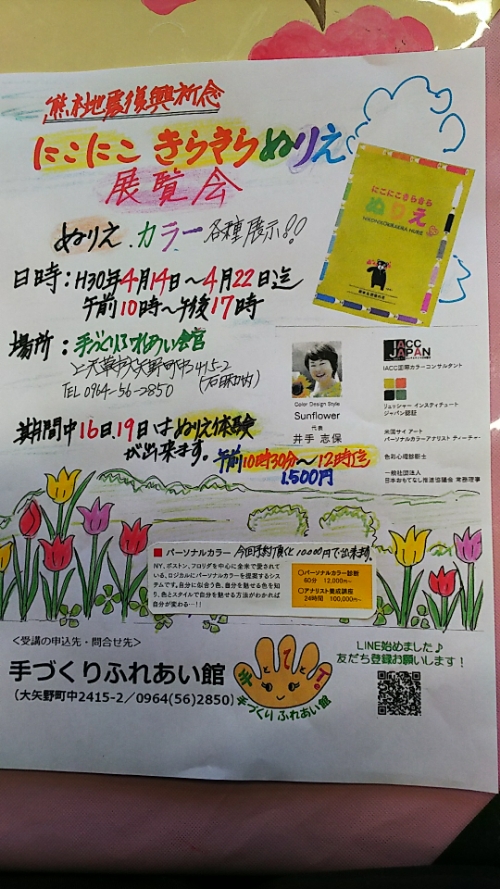 熊本地震復興祈念
にこにこ きらきらぬりえ
展覧会
ぬりえ.カラー各種展示!!
にこにこきらきら
ぬりえ
日時:H30年4月14日~4月22日迄
午前10時~午後17時
場所:手づくりふれあい会館
上天草市大矢野町中2415-2
TEL 0964-56-2850
IACC
JAPAN
IACC国際カラーコンサルタント
リュッシャー インスティテュート
ジャパン認証
米国サイ アート
パーソナルカラーアナリスト ティーチャー
色彩心理診断士
一般社団法人
日本おもてなし推進協議会 常務理事
Color Design Style
Sunflower
代表
井手 志保
期間中16日.19日はぬりえ体験
が出来ます。午前10時30分~12時迄
1,500円
パーソナルカラー 今回予約頂くと10000円で出来ます。
NY、ボストン、フロリダを中心に全米で愛されて
いる、ロジカルにパーソナルカラーを提案するシス
テムです。自分に似合う色、自分を魅せる色を知
り、色とスタイルで自分を魅せる方法がわかれば
自分が変わる…!!
○パーソナルカラー診断
60分 12,000~
○アナリスト養成講座
24時間 100,000~
<受講の申込先・問合せ先>
手づくりふれあい館
(大矢野町中2415-2/0964(56)2850)
手づくり ふれあい館
LINE始めました♪
友だち登録お願いします!